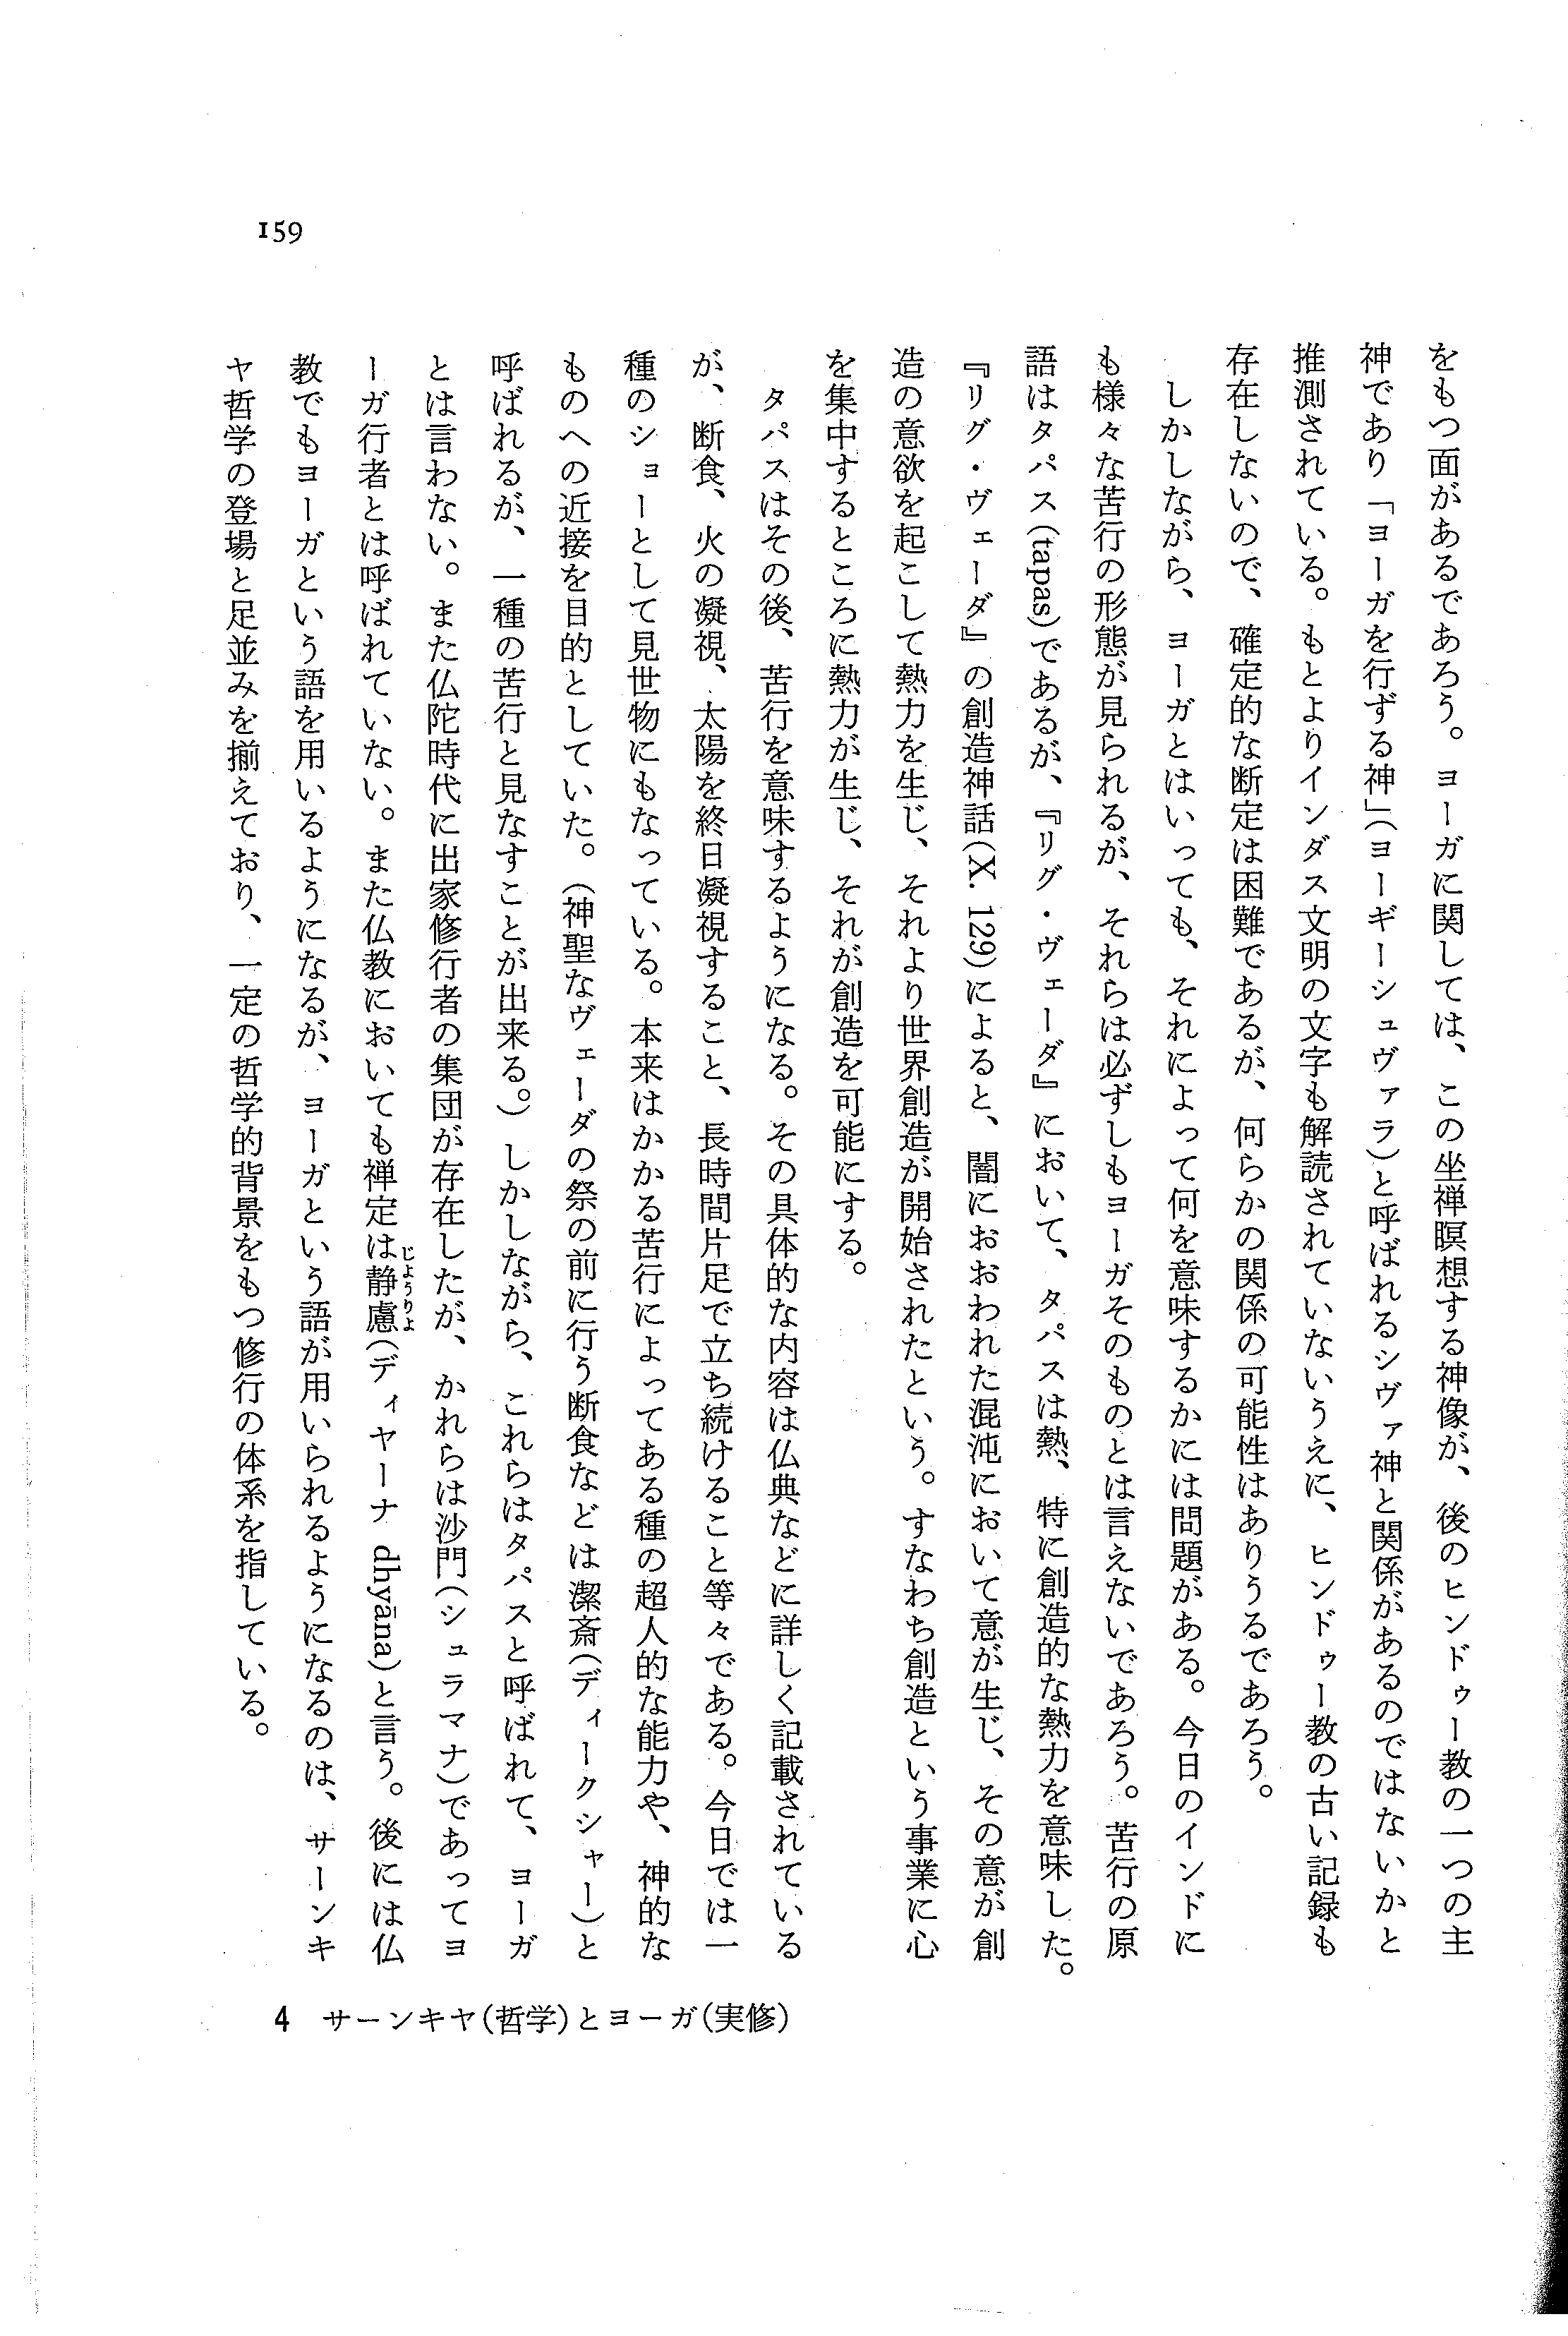 をもつ面があるであろう。ヨーガに関しては、この坐禅瞑想する神像が、後のヒンドゥー教の一つの主
神であり「ヨーガを行ずる神」(ヨーギーシュヴァラ)と呼ばれるシヴァ神と関係があるのではないかと
推測されている。もとよりインダス文明の文字も解読されていないうえに、ヒンドゥー教の古い記録も
存在しないので、確定的な断定は困難であるが、何らかの関係の可能性はありうるであろう。
しかしながら、ヨーガとはいっても、それによって何を意味するかには問題がある。今日のインドに
も様々な苦行の形態が見られるが、それらは必ずしもヨーガそのものとは言えないであろう。苦行の原
語はタパス(tapas)であるが、『リグ・ヴェーダ』において、タパスは熱、特に創造的な熱力を意味した。
『リグ・ヴェーダ』の創造神話(X. 129)によると、闇におおわれた混沌において意が生じ、その意が創
造の意欲を起こして熱力を生じ、それより世界創造が開始されたという。すなわち創造という事業に心
を集中するところに熱力が生じ、それが創造を可能にする。
タパスはその後、苦行を意味するようになる。その具体的な内容は仏典などに詳しく記載されている
が、断食、火の凝視、太陽を終日凝視すること、長時間片足で立ち続けること等々である。今日では一
種のショーとして見世物にもなっている。本来はかかる苦行によってある種の超人的な能力や、神的な
ものへの近接を目的としていた。(神聖なヴェーダの祭の前に行う断食などは潔斎(ディークシャー)と
呼ばれるが、一種の苦行と見なすことが出来る。)しかしながら、これらはタパスと呼ばれて、ヨーガ
とは言わない。また仏陀時代に出家修行者の集団が存在したが、かれらは沙門(シュラマナ)であってヨ
ーガ行者とは呼ばれていない。また仏教においても禅定は静慮じょうりょ(ディヤーナ dhyāna)と言う。後には仏
教でもヨーガという語を用いるようになるが、ヨーガという語が用いられるようになるのは、サーンキ
ヤ哲学の登場と足並みを揃えており、一定の哲学的背景をもつ修行の体系を指している。
159
4 サーンキヤ(哲学)とヨーガ(実修)